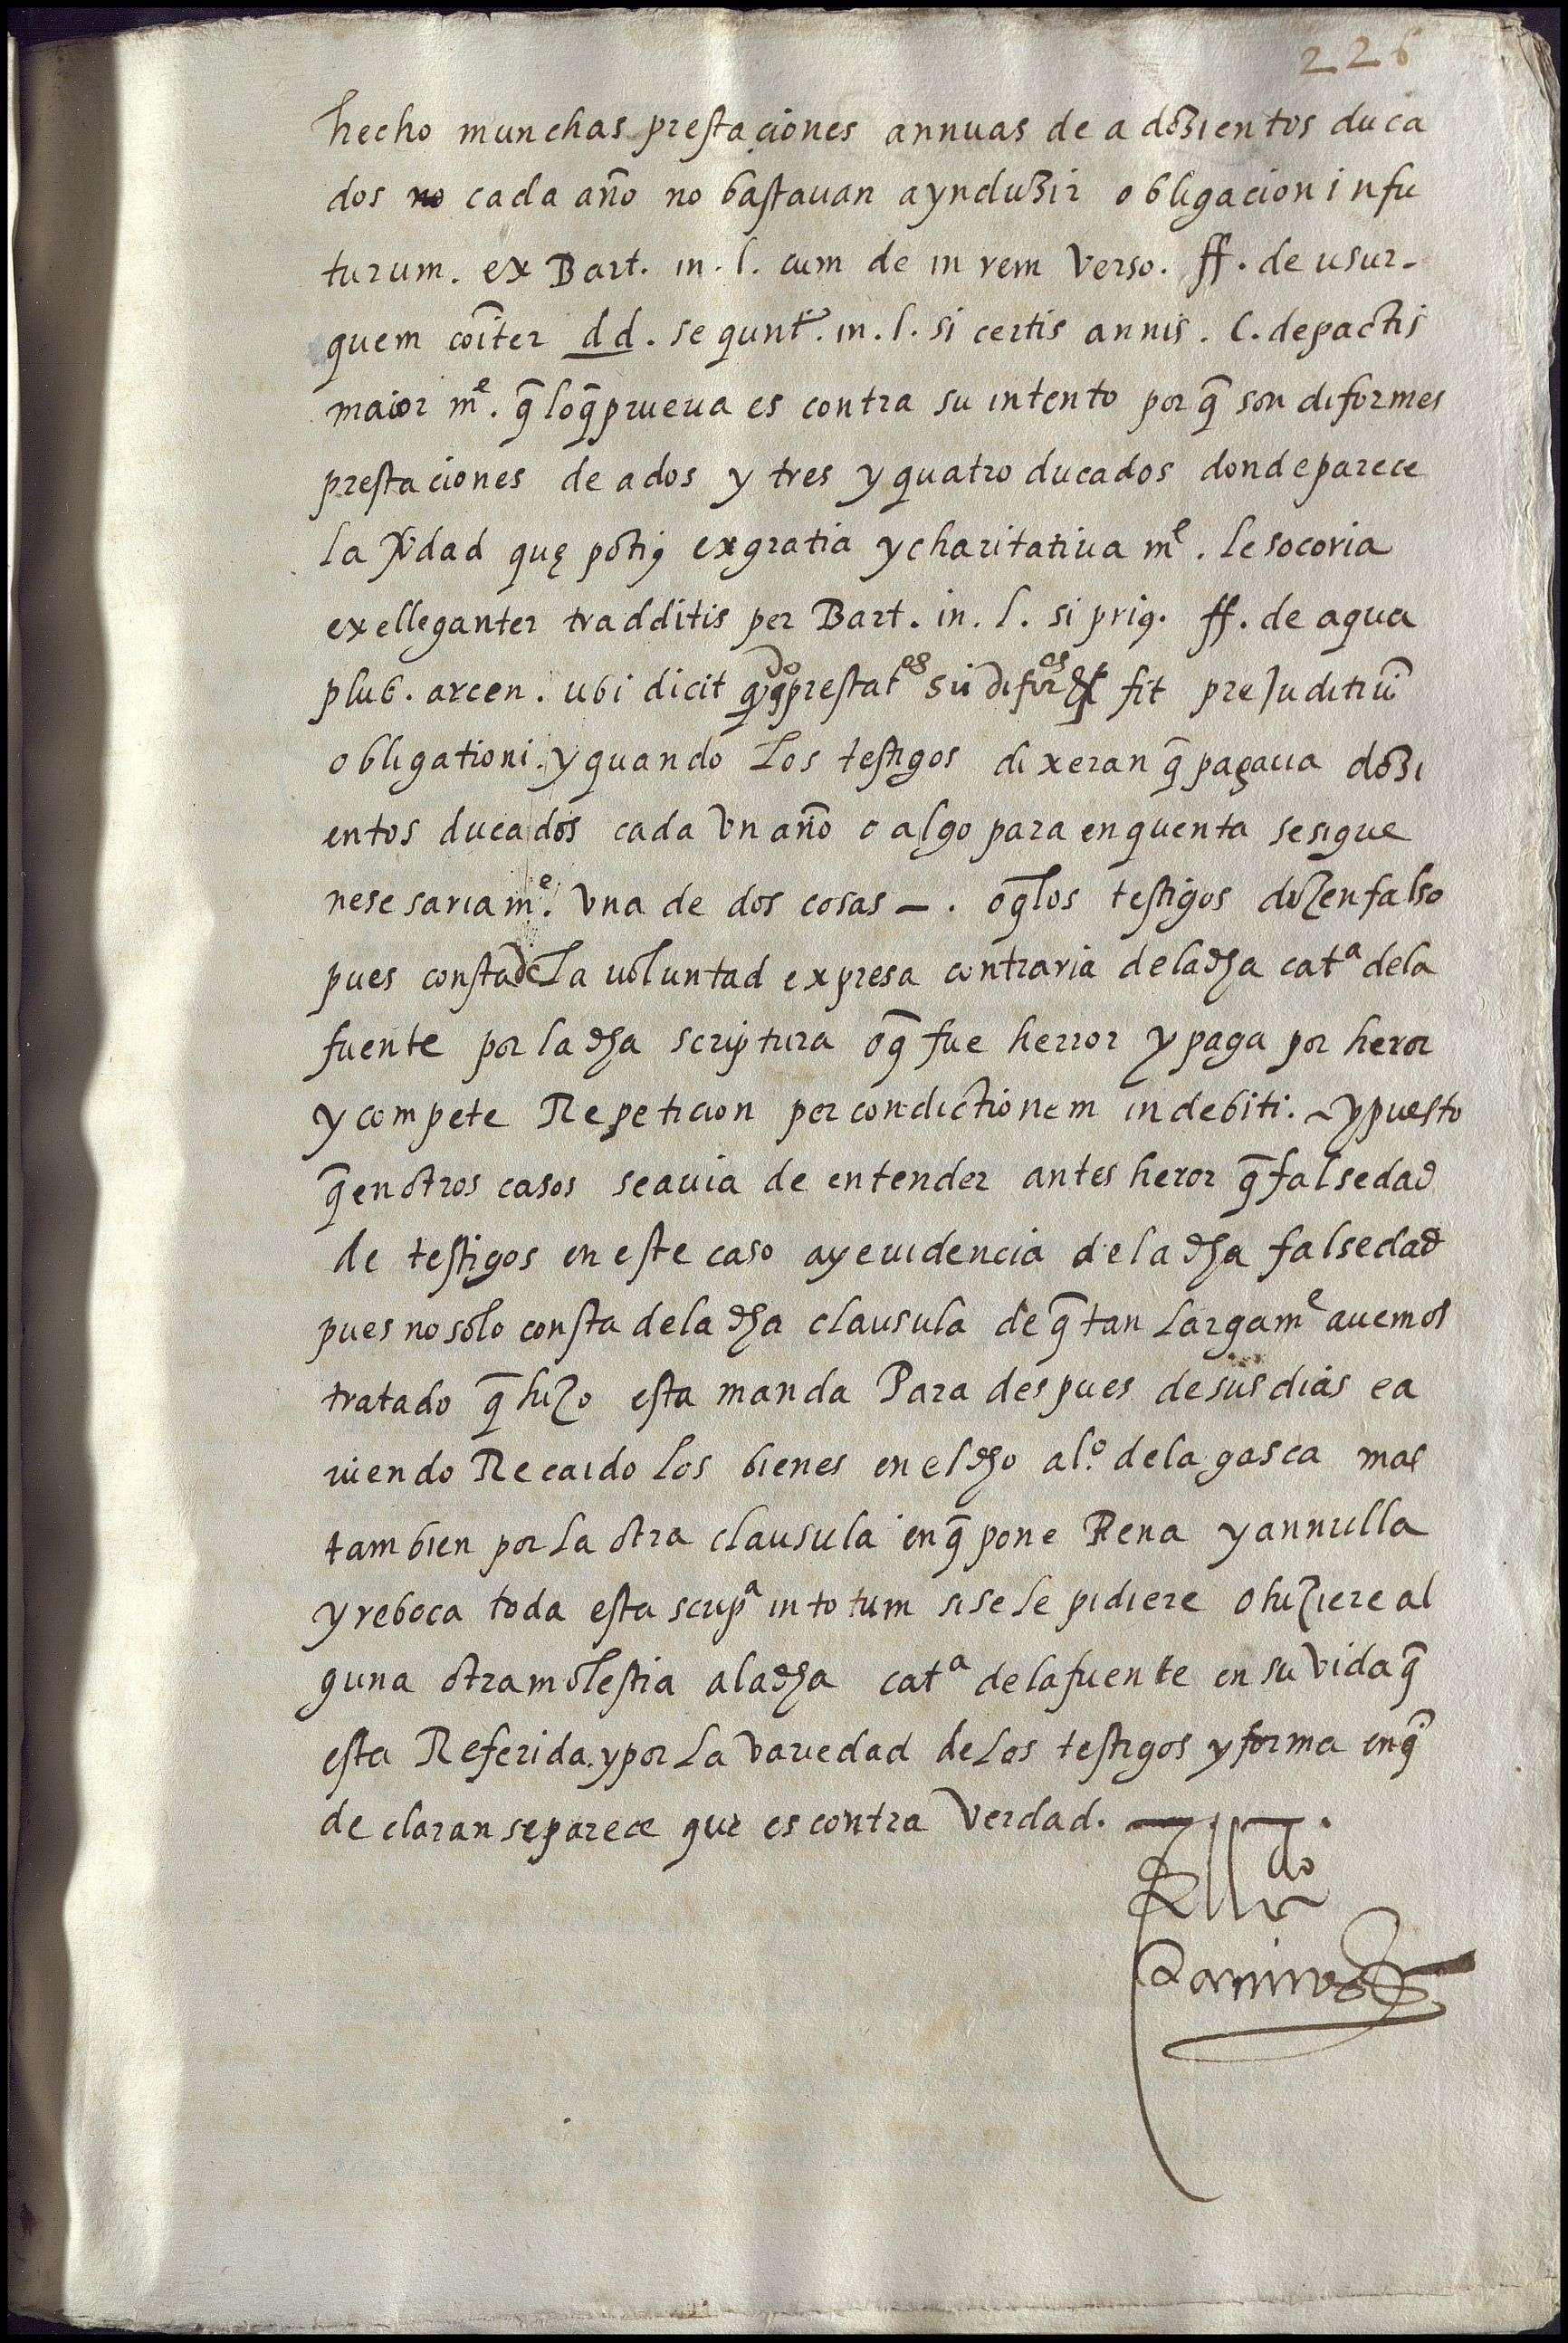 226
hecho munchas prestaçiones annuas de a dozientos duca
dos no cada año no bastauan a ynduzir obligacion in fu
turum. ex Bart. in. l. cum de in rem verso. ff. de usur-
quem cōiter dd. sequnt̃. in. l. si certis annis. C. de pactis
maior mᵉ. q̄ lo q̄ prueua es contra su intento por q̄ son diformes
prestaciones de a dos y tres y quatro ducados donde parece
la v̄dad que potiꝰ ex gratia y charitatiua mᵉ. le socoria
ex elleganter tradditis per Bart. in. l. si priꝰ. ff. de aqua
plub. arcen. ubi dicit prestatᵉˢ fit prejuditiū
obligationi. y quando los testigos dixeran q̄ pagaua dozi
entos ducados cada vn año o algo para en quenta se sigue
nesesariamᵉ. vna de dos cosas —. o q̄ los testigos dizen falso
pues consta de la voluntad expresa contraria de la dha catᵃ de la
fuente por la dha scriptura o q̄ fue herror y paga por heror
y compete Repeticion per condictionem indebiti. ~ y puesto
q̄ en otros casos se auia de entender antes heror q̄ falsedad
de testigos en este caso ay euidencia de la dha falsedad
pues no solo consta de la dha clausula de q̄ tan largamᵉ auemos
tratado q̄ hizo esta manda Para despues de sus dias e a
uiendo Recaido los bienes en el dho al.º de la gasca mas
tambien por la otra clausula en q̄ pone Pena y annulla
y reboca toda esta scripᵃ in totum si se le pidiere o hiziere al
guna otra molestia a la dha catᵃ de la fuente en su vida q̄
esta Referida. y por la variedad de los testigos y forma en q̄
declaran se parece que es contra verdad.
El lᵈᵒ
Ramirez